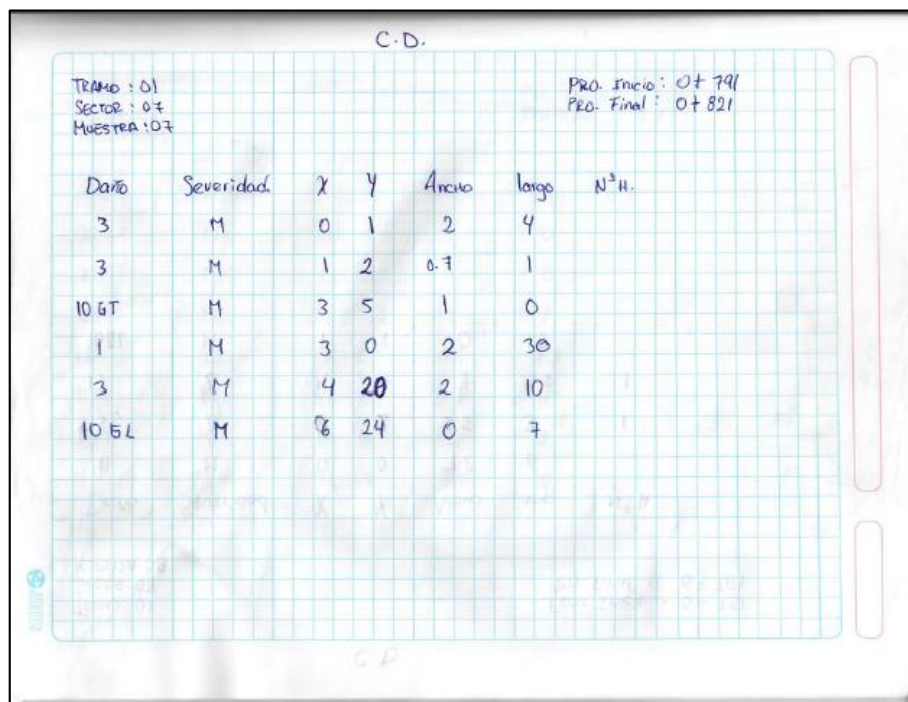 C.D.
TRAMO : 01
SECTOR : 07
MUESTRA : 07
PRO. Inicio : 0+791
PRO. Final : 0+821
Daño Severidad. X Y Ancho largo N° H.
3 M 0 1 2 4
3 M 1 2 0.7 1
10 GT M 3 5 1 0
1 M 3 0 2 30
3 M 4 20 2 10
10 GL M 6 24 0 7